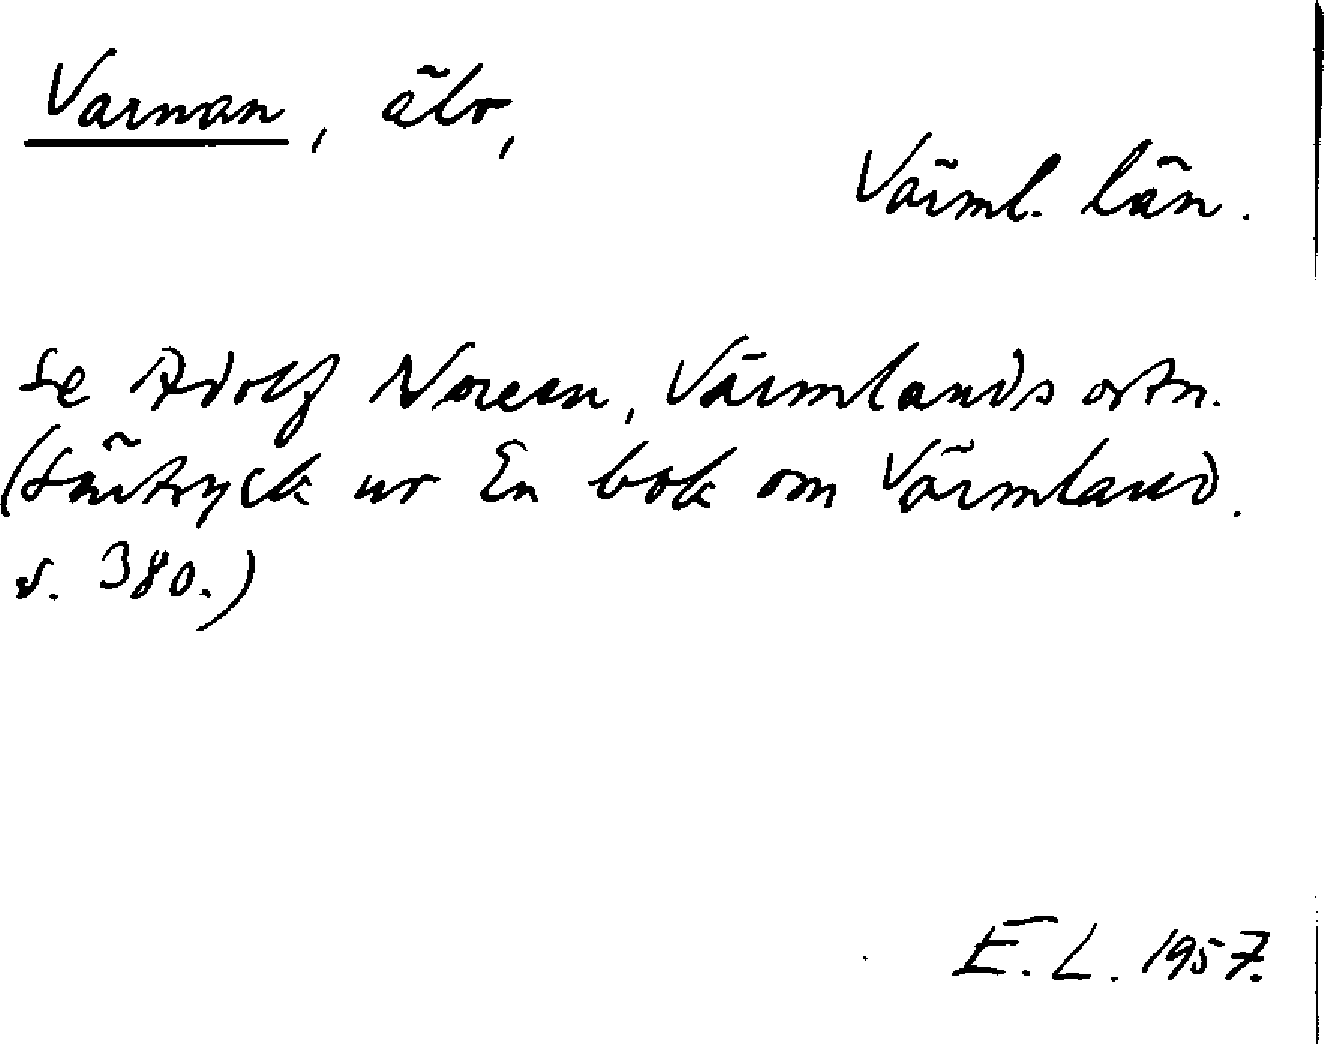 Varnan, älv,
Värml. län.
Se Adolf Noreen, Värmlands ortn.
(Särtryck ur En bok om Värmland.
s. 380.)
E. L. 1957.